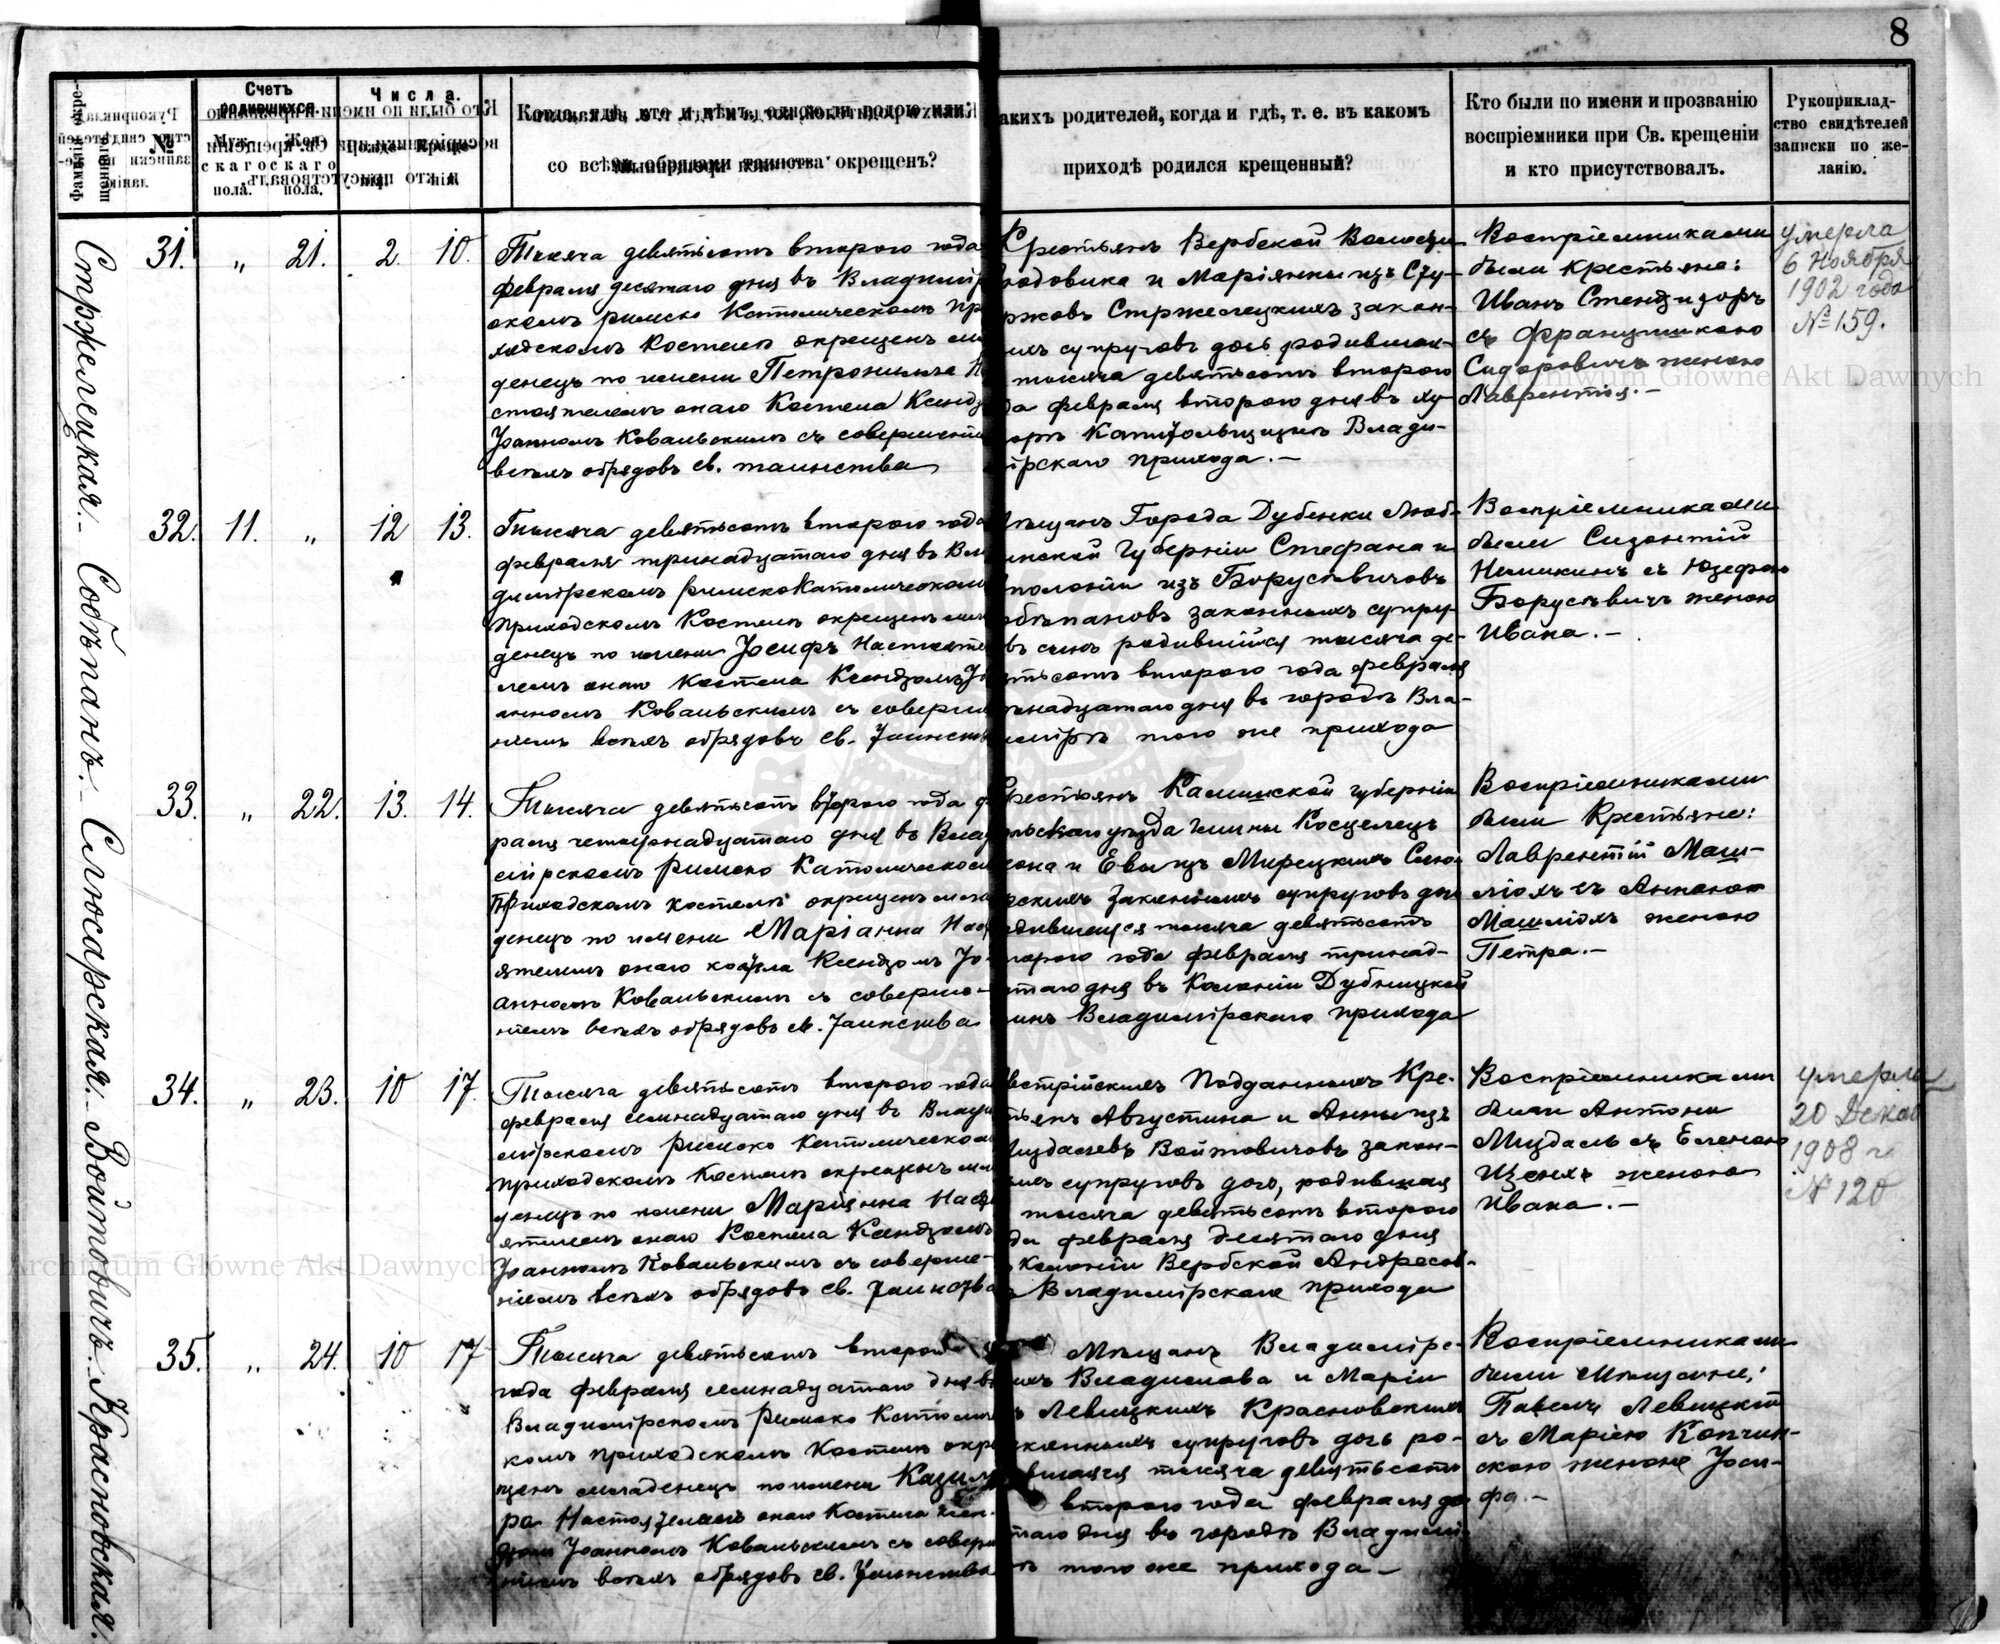 8
Фамилія окрещеннаго.
№
Счетъ родившихся.
Мужскаго пола.
Женскаго пола.
Числа.
Когда, гдѣ, кто и кѣмъ, одною ли водою или
со всѣми обрядами таинства окрещенъ?
какихъ родителей, когда и гдѣ, т. е. въ какомъ
приходѣ родился крещенный?
Кто были по имени и прозванію
воспріемники при Св. крещеніи
и кто присутствовалъ.
Рукоприклад-
ство свидѣтелей
записки по же-
ланію.
Стржелецкая.- Собѣпанъ.- Слюсарская.- Войтовичъ.- Красновская.
31. " 21. 2. 10.
Тысяча девятьсотъ второго года
февраля десятаго дня въ Владимір
скомъ римско Католическомъ При
ходскомъ Костелѣ окрещенъ мла
денецъ по имени Петронилла На
стоятелемъ онаго Костела Ксендз
Іоанномъ Ковальскимъ съ совершені
всѣхъ обрядовъ св. таинства
Крестьянъ Вербской Волости
Людовика и Маріянны изъ
Стржелецкихъ закон-
ныхъ супруговъ дочь родившаяся
тысяча девятьсотъ второго
года февраля второго дня въ ху-
торѣ Влади-
мірскаго прихода.-
Воспріемниками
были Крестьяне:
Иванъ
съ Францишкою
Сидоровичъ женою
Лаврентія.-
умерла
6 Ноября
1902 года
№ 159.
32. 11. " 12 13.
Тысяча девятьсотъ второго года
февраля тринадцатаго дня въ Вла
димірскомъ римско Католическомъ
приходскомъ Костелѣ окрещенъ мла
денецъ по имени Іосифъ Настояте
лемъ онаго Костела Ксендзомъ Іо
анномъ Ковальскимъ съ соверше
ніемъ всѣхъ обрядовъ св. Таинств
Мѣщанъ Города Дубенки Люб-
линской Губерніи Стефана и
Аполоніи изъ Борусевичовъ
Собѣпановъ законныхъ супру-
говъ сынъ родившійся тысяча де-
вятьсотъ второго года февраля
двѣнадцатаго дня въ городѣ Вла-
димірѣ того же прихода
Воспріемниками
были
съ Юзефою
Борусевичъ женою
Ивана.-
33. " 22. 13. 14.
Тысяча девятьсотъ второго года фе
раля четырнадцатаго дня въ Влад
мірскомъ Римско Католическом
Приходскомъ костелѣ окрещенъ мла
денецъ по имени Маріанна Наст
ятелемъ онаго костела Ксендзомъ Іо-
анномъ Ковальскимъ съ соверше-
ніемъ всѣхъ обрядовъ св. Таинства
Крестьянъ Калишской губерніи
Кольскаго уѣзда гмины Косцелецъ
и Евы изъ Мирецкихъ Слю-
сарскихъ законныхъ супруговъ дочь
родившаяся тысяча девятьсотъ
второго года февраля тринад-
цатаго дня въ Колоніи Дубницкой
Владимірскаго прихода
Воспріемниками
были Крестьяне:
Лаврентій
съ Анною
женою
Петра.-
34. " 23. 10 17.
Тысяча девятьсотъ второго года
февраля семнадцатаго дня въ Влади
мірскомъ Римско Католическом
приходскомъ Костелѣ окрещенъ мла
денецъ по имени Маріянна Насто
ятелемъ онаго Костела Ксендзомъ
Іоанномъ Ковальскимъ съ соверше-
ніемъ всѣхъ обрядовъ св. Таинства
Австрійскихъ Подданныхъ Кре-
стьянъ Августина и Анны изъ
Миздалевъ Войтовичовъ закон-
ныхъ супруговъ дочь, родившаяся
тысяча девятьсотъ второго
года февраля десятаго дня
въ Колоніи Вербской Андресов-
Владимірскаго прихода
Воспріемниками
были Антони
Миздаль съ Еленою
женою
Ивана.-
умерла
20 Декаб
1908 г.
№ 120
35. " 24. 10 17
Тысяча девятьсотъ второго
года февраля семнадцатаго дня въ
Владимірскомъ Римско Католиче
скомъ приходскомъ Костелѣ окре
щенъ младенецъ по имени Казими
ра Настоятелемъ онаго Костела Ксен-
дзомъ Іоанномъ Ковальскимъ съ соверше
ніемъ всѣхъ обрядовъ св. Таинства
Мѣщанъ Владимірс-
кихъ Владислава и Маріи
изъ Левицкихъ Красновскихъ
законныхъ супруговъ дочь ро-
дившаяся тысяча девятьсотъ
второго года февраля де
сятаго дня въ городѣ Владимі
рѣ того же прихода-
Воспріемниками
были Мѣщане:
Павелъ Левицкій
съ Маріею Копчин-
скою женою Іоси-
фа.-
Archiwum Główne Akt Dawnych
Archiwum Główne Akt Dawnych